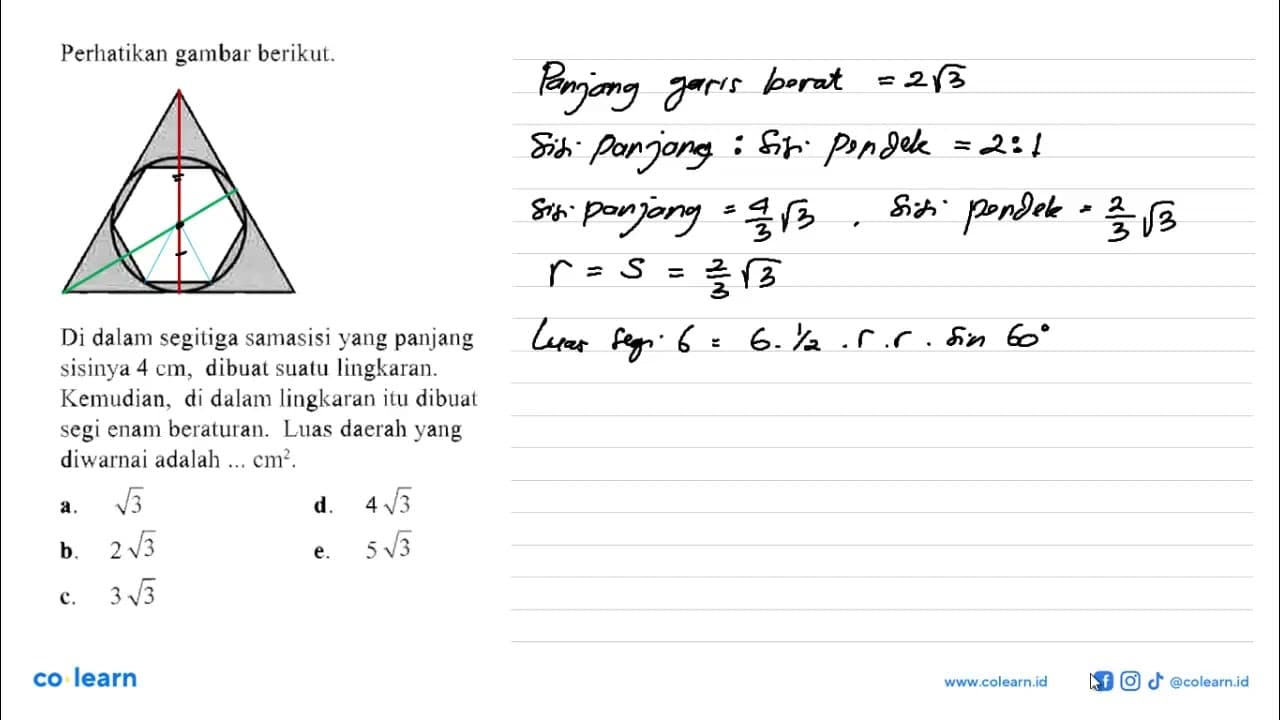 Perhatikan gambar berikut.
Di dalam segitiga samasisi yang panjang
sisinya 4 cm, dibuat suatu lingkaran.
Kemudian, di dalam lingkaran itu dibuat
segi enam beraturan. Luas daerah yang
diwarnai adalah ... cm².
a. √3
b. 2√3
c. 3√3
d. 4√3
e. 5√3
Panjang garis berat = 2√3
Sisi panjang : Sisi pendek = 2:1
Sisi panjang = 4/3 √3 . Sisi pendek = 2/3 √3
r = s = 2/3 √3
Luas segi 6 = 6 . 1/2 . r . r . sin 60°
co·learn
www.colearn.id @colearn.id